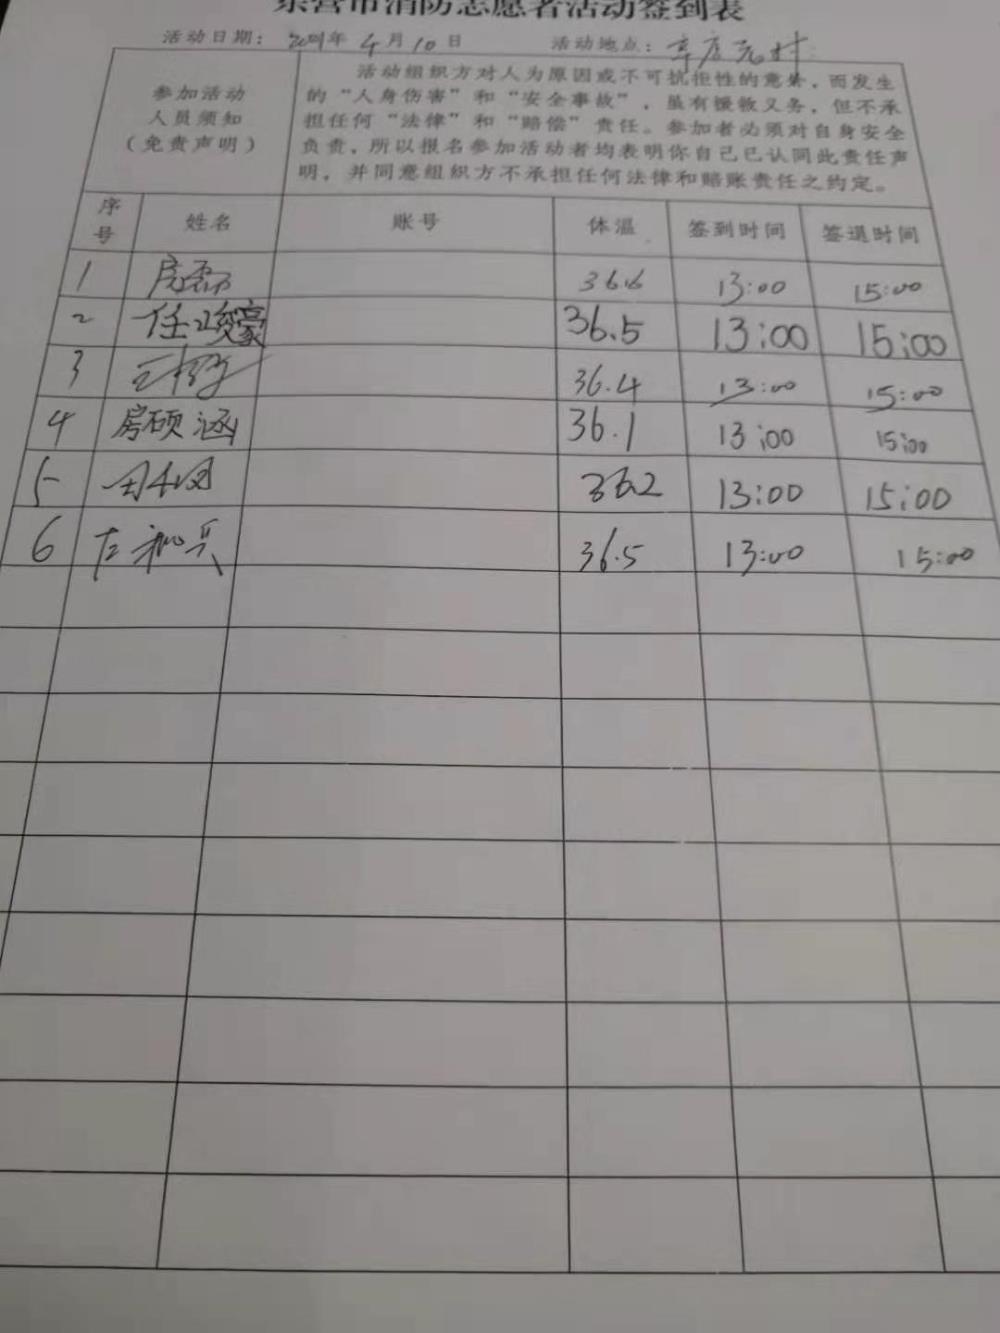 东营市消防志愿者活动签到表
活动日期：2021年 4月 10日 活动地点：辛店元村
参加活动
人员须知
（免责声明）
活动组织方对人为原因或不可抗拒性的意外，而发生
的“人身伤害”和“安全事故”，虽有援救义务，但不承
担任何“法律”和“赔偿”责任。参加者必须对自身安全
负责，所以报名参加活动者均表明你自己已认同此责任声
明，并同意组织方不承担任何法律和赔账责任之约定。
序号 姓名 账号 体温 签到时间 签退时间
1 房磊 36.6 13:00 15:00
2 任峻豪 36.5 13:00 15:00
3 36.4 13:00 15:00
4 房硕涵 36.1 13:00 15:00
5 36.2 13:00 15:00
6 36.5 13:00 15:00